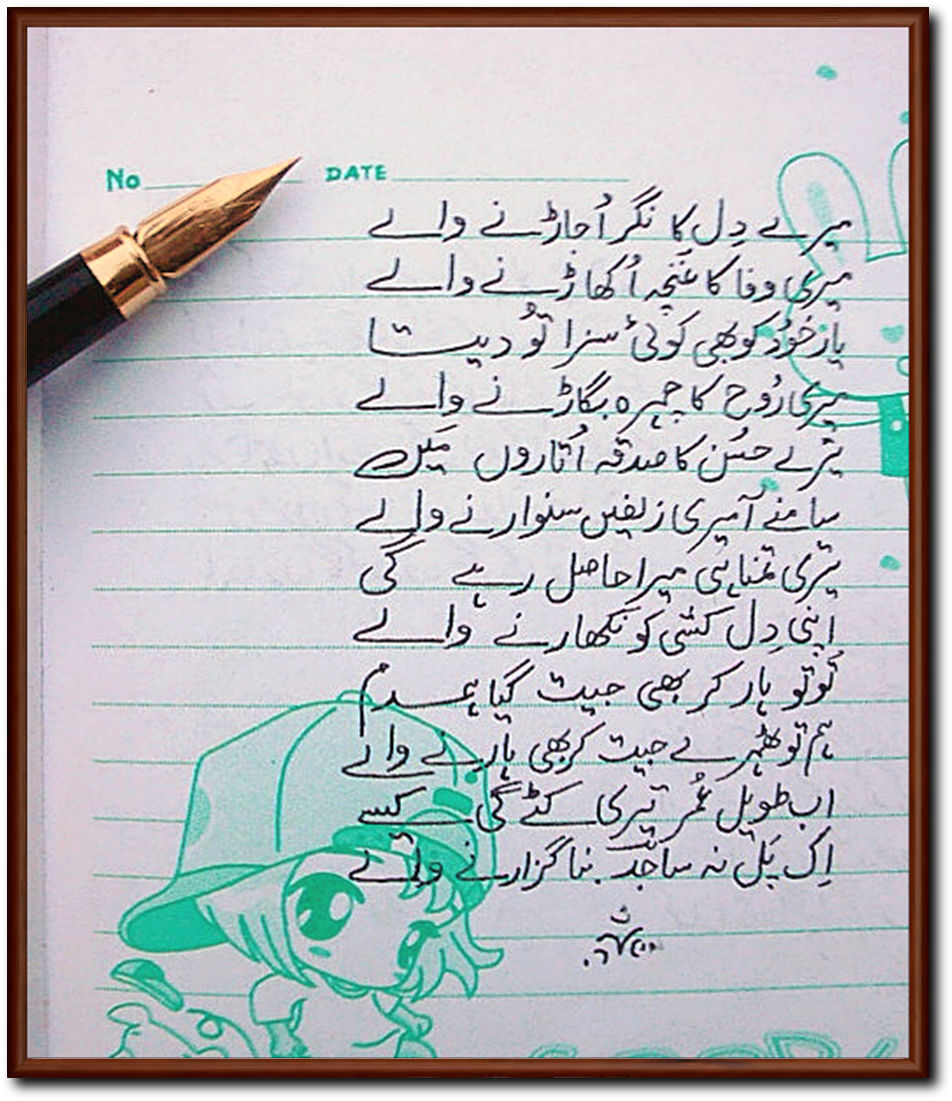 No DATE
میرے دِل کا نگر اُجاڑنے والے
میری وفا کا غنچہ اُکھاڑنے والے
یار خود کو بھی کوئی سزا تُو دیتا
میری رُوح کا چہرہ بگاڑنے والے
تیرے حُسن کا صدقہ اُتاروں میں
سامنے آ میری زلفیں سنوارنے والے
تیری تمنا ہی میرا حاصل رہے گی
اپنی دِل کشی کو نکھارنے والے
تُو تو ہار کر بھی جیت گیا ہمدم
ہم تو ٹھہرے جیت کر بھی ہارنے والے
اب طویل عُمر تیری کٹے گی کیسے
اِک پَل نہ ساجد بنا گزارنے والے